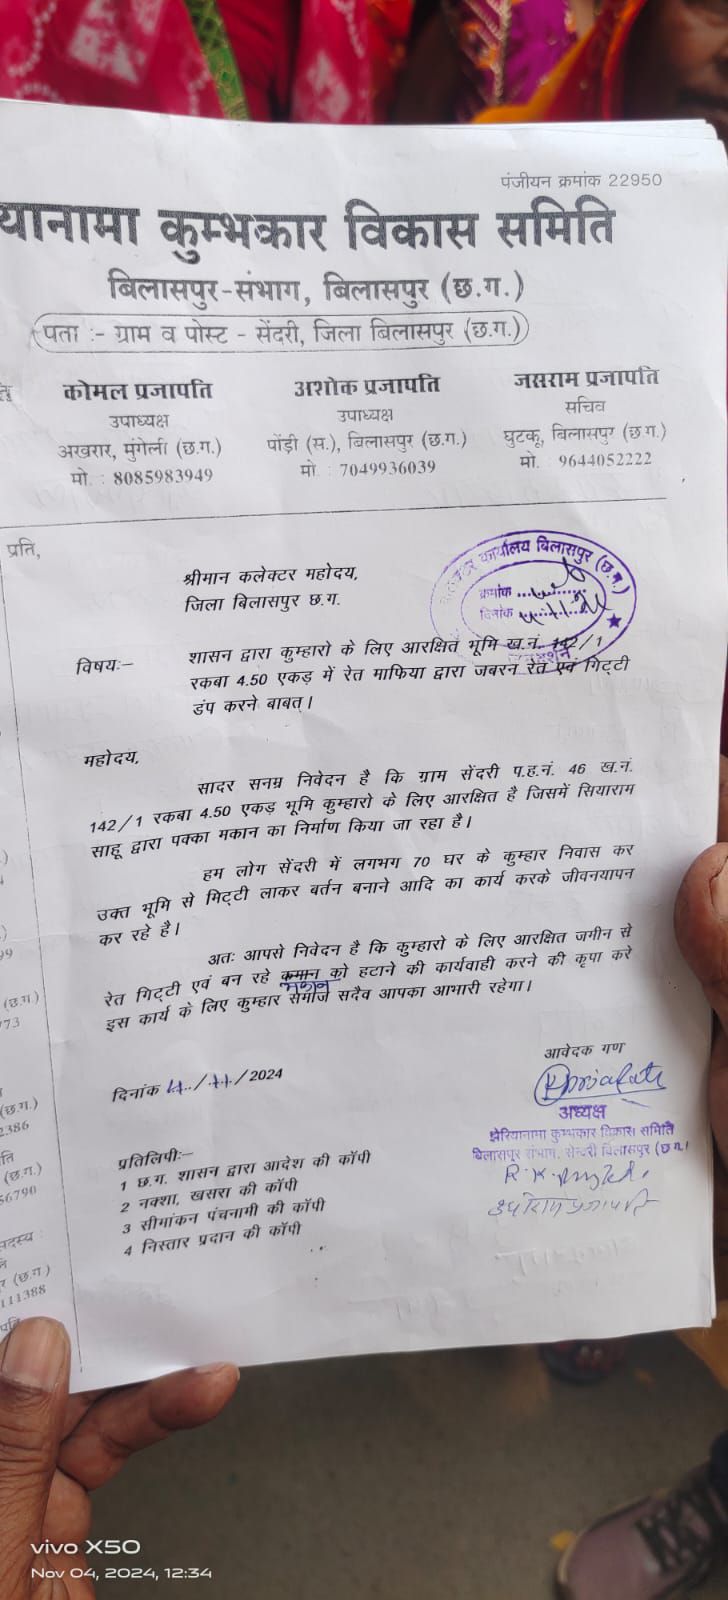 पंजीयन क्रमांक 22950
यानामा कुम्भकार विकास समिति
बिलासपुर-संभाग, बिलासपुर (छ.ग.)
पता :- ग्राम व पोस्ट - सेंदरी, जिला बिलासपुर (छ.ग.)
कोमल प्रजापति
उपाध्यक्ष
अखरार, मुंगेली (छ.ग.)
मो. : 8085983949
अशोक प्रजापति
उपाध्यक्ष
पोंड़ी (स.), बिलासपुर (छ.ग.)
मो. : 7049936039
जसराम प्रजापति
सचिव
घुटकू, बिलासपुर (छ.ग.)
मो. : 9644052222
प्रति,
श्रीमान कलेक्टर महोदय,
जिला बिलासपुर छ.ग.
कार्यालय बिलासपुर (छ.ग.)
क्रमांक
दिनांक
विषयः-
शासन द्वारा कुम्हारो के लिए आरक्षित भूमि ख.नं. 142/1
रकबा 4.50 एकड़ में रेत माफिया द्वारा जबरन रेत एवं गिट्टी
डंप करने बाबत्।
महोदय,
सादर सनम्र निवेदन है कि ग्राम सेंदरी प.ह.नं. 46 ख.नं.
142/1 रकबा 4.50 एकड़ भूमि कुम्हारो के लिए आरक्षित है जिसमें सियाराम
साहू द्वारा पक्का मकान का निर्माण किया जा रहा है।
हम लोग सेंदरी में लगभग 70 घर के कुम्हार निवास कर
उक्त भूमि से मिट्टी लाकर बर्तन बनाने आदि का कार्य करके जीवनयापन
कर रहे है।
अतः आपसे निवेदन है कि कुम्हारो के लिए आरक्षित जगीन से
रेत गिट्टी एवं बन रहे कमान को हटाने की कार्यवाही करने की कृपा करे
मकान
इस कार्य के लिए कुम्हार समाज सदैव आपका आभारी रहेगा।
दिनांक 4/11/2024
आवेदक गण
अध्यक्ष
झेरियानामा कुम्भकार विकास समिति
बिलासपुर संभाग, सेन्दरी बिलासपुर (छ.ग.)
प्रतिलिपीः-
1 छ.ग. शासन द्वारा आदेश की कॉपी
2 नक्शा, खसरा की कॉपी
3 सीमांकन पंचनामी की कॉपी
4 निस्तार प्रदान की कॉपी
(छ.ग.)
(छ.ग.)
2386
(छ.ग.)
56790
(छ.ग.)
111388
vivo X50
Nov 04, 2024, 12:34